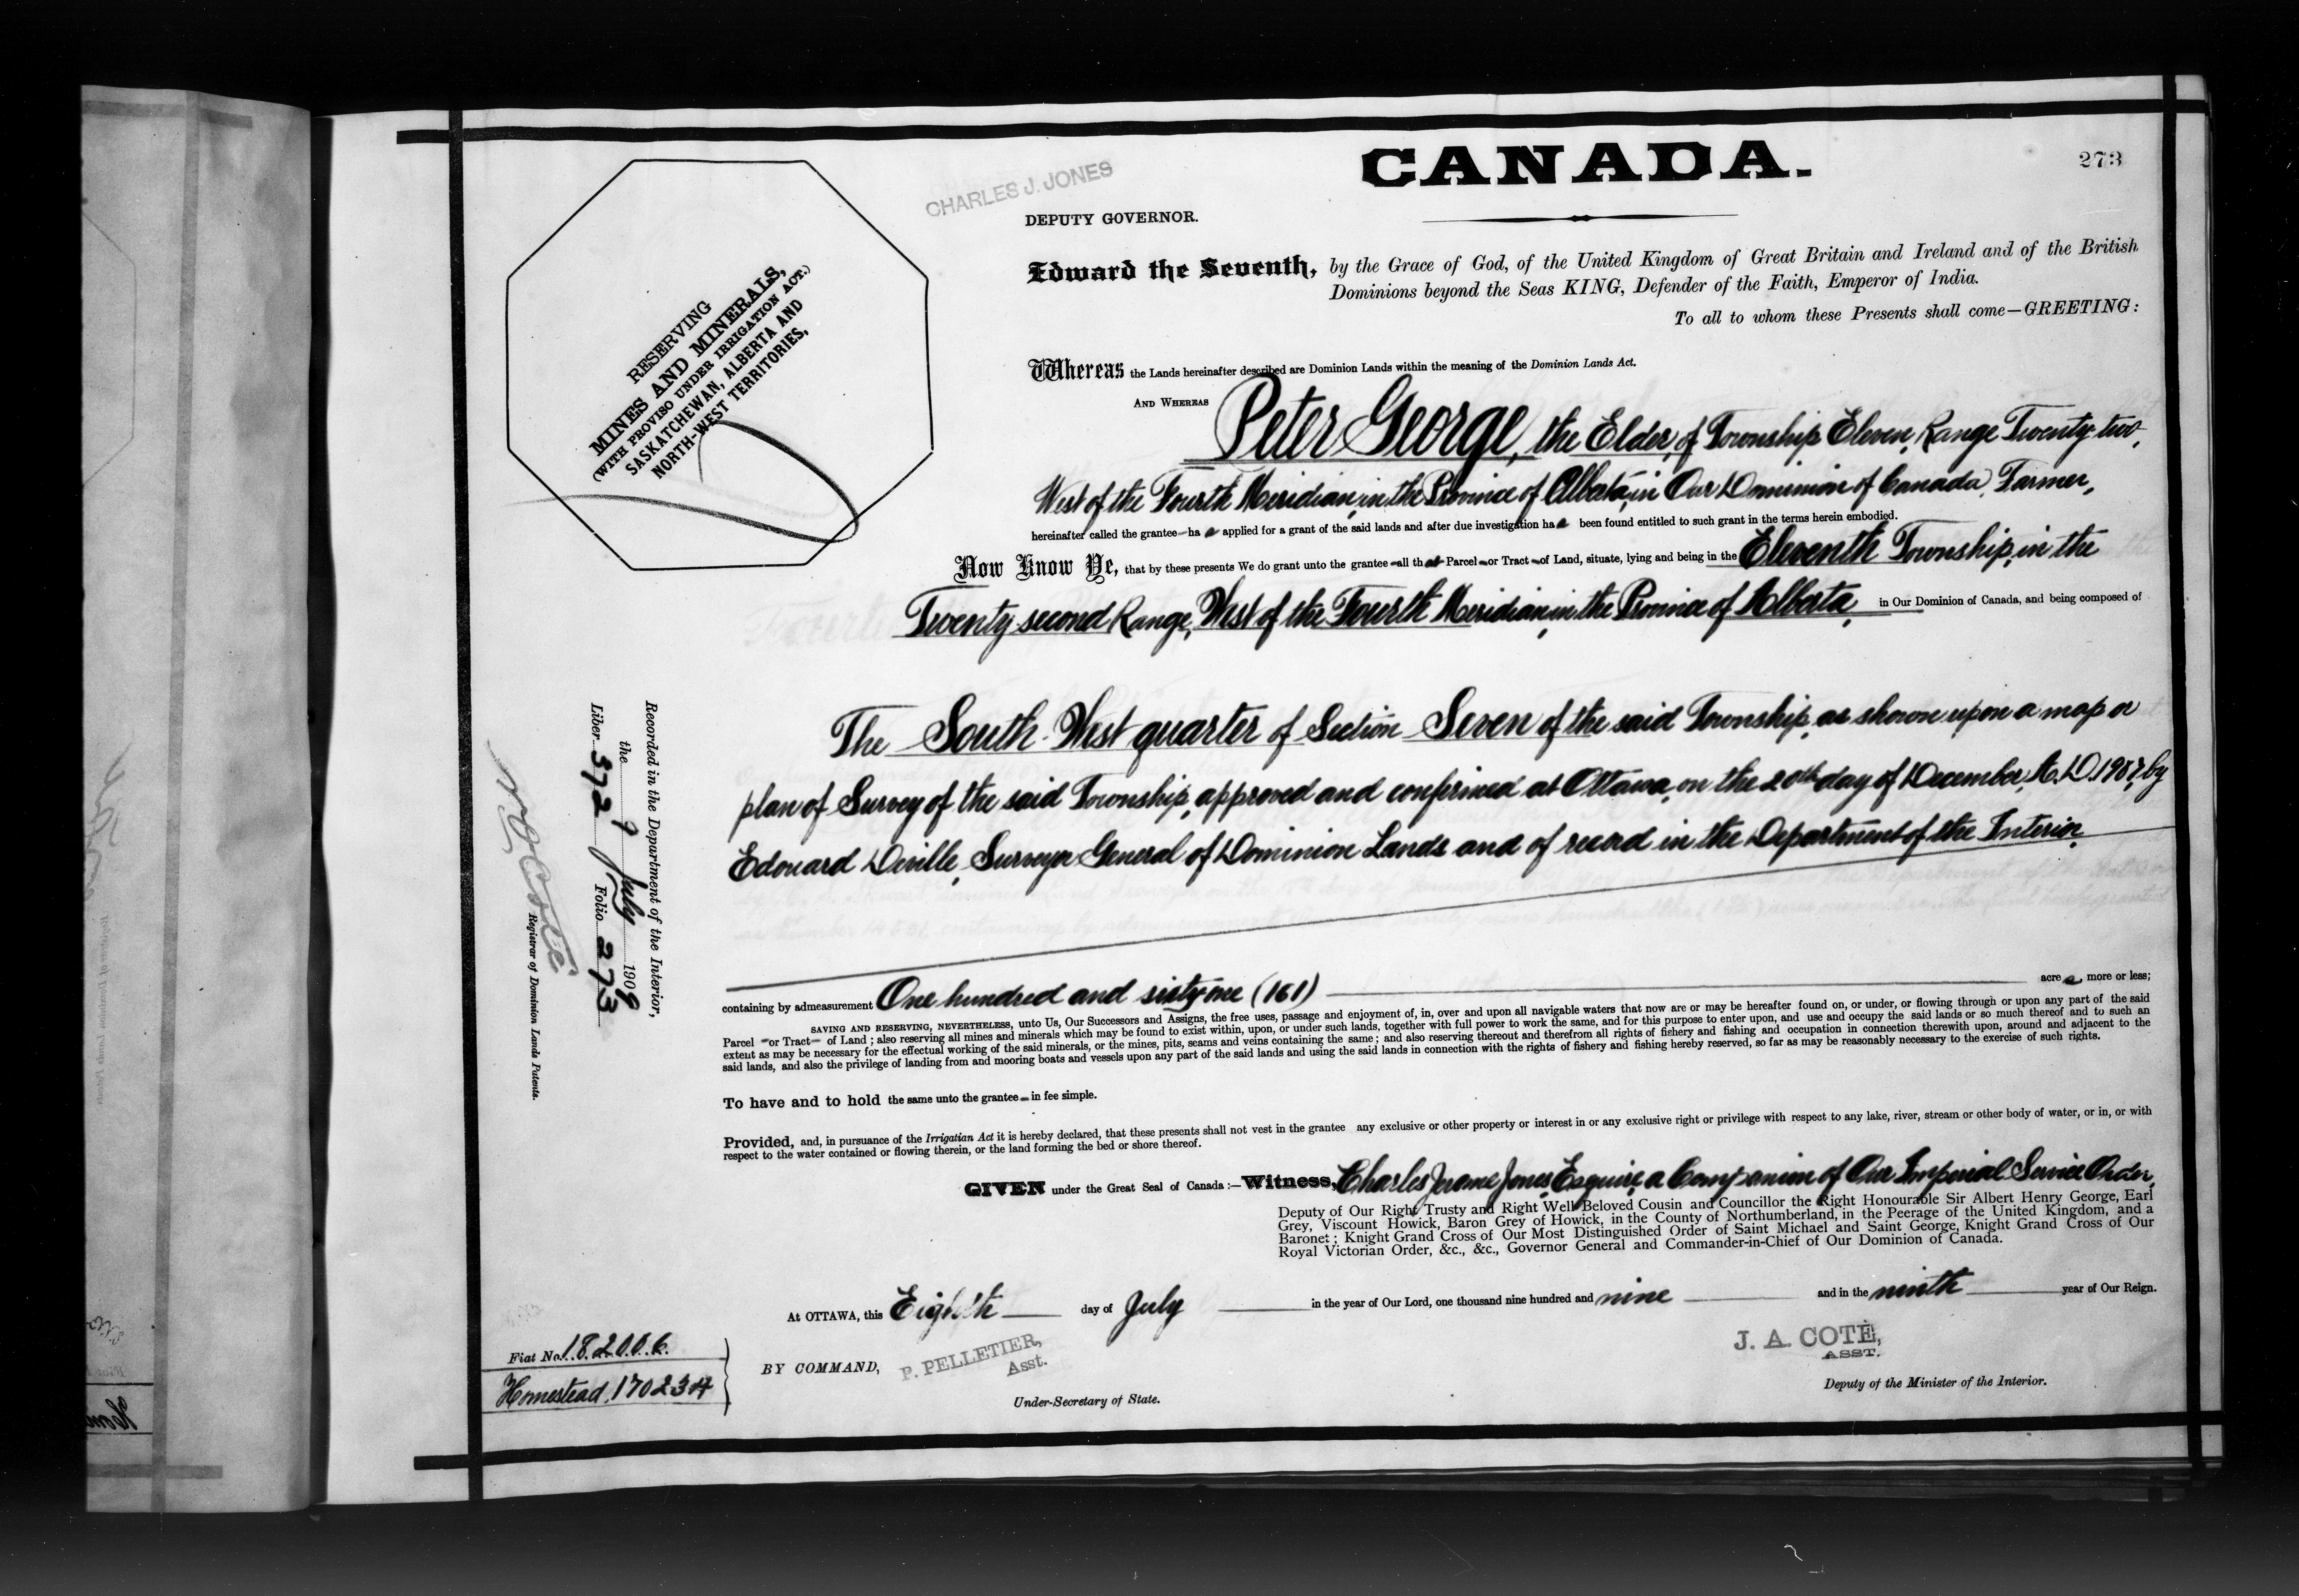 CANADA.
273
CHARLES J. JONES
DEPUTY GOVERNOR.
RESERVING
MINES AND MINERALS,
(WITH PROVISO UNDER IRRIGATION ACT.)
SASKATCHEWAN, ALBERTA AND
NORTH-WEST TERRITORIES,
Edward the Seventh, by the Grace of God, of the United Kingdom of Great Britain and Ireland and of the British
Dominions beyond the Seas KING, Defender of the Faith, Emperor of India.
To all to whom these Presents shall come—GREETING:
Whereas the Lands hereinafter described are Dominion Lands within the meaning of the Dominion Lands Act.
AND WHEREAS Peter George, the Elder, of Township Eleven, Range Twenty two,
West of the Fourth Meridian, in the Province of Alberta, in Our Dominion of Canada, Farmer,
hereinafter called the grantee ha s applied for a grant of the said lands and after due investigation ha s been found entitled to such grant in the terms herein embodied.
Now Know Ye, that by these presents We do grant unto the grantee all that Parcel or Tract of Land, situate, lying and being in the Eleventh Township, in the
Twenty-second Range, West of the Fourth Meridian, in the Province of Alberta, in Our Dominion of Canada, and being composed of
The South West quarter of Section Seven of the said Township, as shown upon a map or
plan of Survey of the said Township, approved and confirmed at Ottawa, on the 20th day of December, A.D. 1907, by
Edouard Deville, Surveyor General of Dominion Lands and of record in the Department of the Interior,
containing by admeasurement One hundred and sixty-one (161) acre s more or less;
SAVING AND RESERVING, NEVERTHELESS, unto Us, Our Successors and Assigns, the free uses, passage and enjoyment of, in, over and upon all navigable waters that now are or may be hereafter found on, or under, or flowing through or upon any part of the said
Parcel or Tract of Land; also reserving all mines and minerals which may be found to exist within, upon, or under such lands, together with full power to work the same, and for this purpose to enter upon, and use and occupy the said lands or so much thereof and to such an
extent as may be necessary for the effectual working of the said minerals, or the mines, pits, seams and veins containing the same; and also reserving thereout and therefrom all rights of fishery and fishing and occupation in connection therewith upon, around and adjacent to the
said lands, and also the privilege of landing from and mooring boats and vessels upon any part of the said lands and using the said lands in connection with the rights of fishery and fishing hereby reserved, so far as may be reasonably necessary to the exercise of such rights.
To have and to hold the same unto the grantee in fee simple.
Provided, and, in pursuance of the Irrigatian Act it is hereby declared, that these presents shall not vest in the grantee any exclusive or other property or interest in or any exclusive right or privilege with respect to any lake, river, stream or other body of water, or in, or with
respect to the water contained or flowing therein, or the land forming the bed or shore thereof.
GIVEN under the Great Seal of Canada:—Witness, Charles Jerome Jones, Esquire, a Companion of Our Imperial Service Order,
Deputy of Our Right Trusty and Right Well Beloved Cousin and Councillor the Right Honourable Sir Albert Henry George, Earl
Grey, Viscount Howick, Baron Grey of Howick, in the County of Northumberland, in the Peerage of the United Kingdom, and a
Baronet; Knight Grand Cross of Our Most Distinguished Order of Saint Michael and Saint George, Knight Grand Cross of Our
Royal Victorian Order, &c., &c., Governor General and Commander-in-Chief of Our Dominion of Canada.
At OTTAWA, this Eighth day of July in the year of Our Lord, one thousand nine hundred and nine and in the ninth year of Our Reign.
BY COMMAND,
P. PELLETIER,
Asst.
Under-Secretary of State.
J. A. COTÈ,
ASST.
Deputy of the Minister of the Interior.
Recorded in the Department of the Interior,
the 9 July 1909
Liber 372 Folio 273
Registrar of Dominion Lands Patents.
Fiat No. 182006
Homestead, 170234